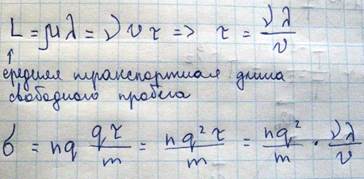 L = μλ = νvτ => τ = νλ/v
↑
средняя транспортная длина
свободного пробега
σ = nq qτ/m = nq²τ/m = nq²/m · νλ/v